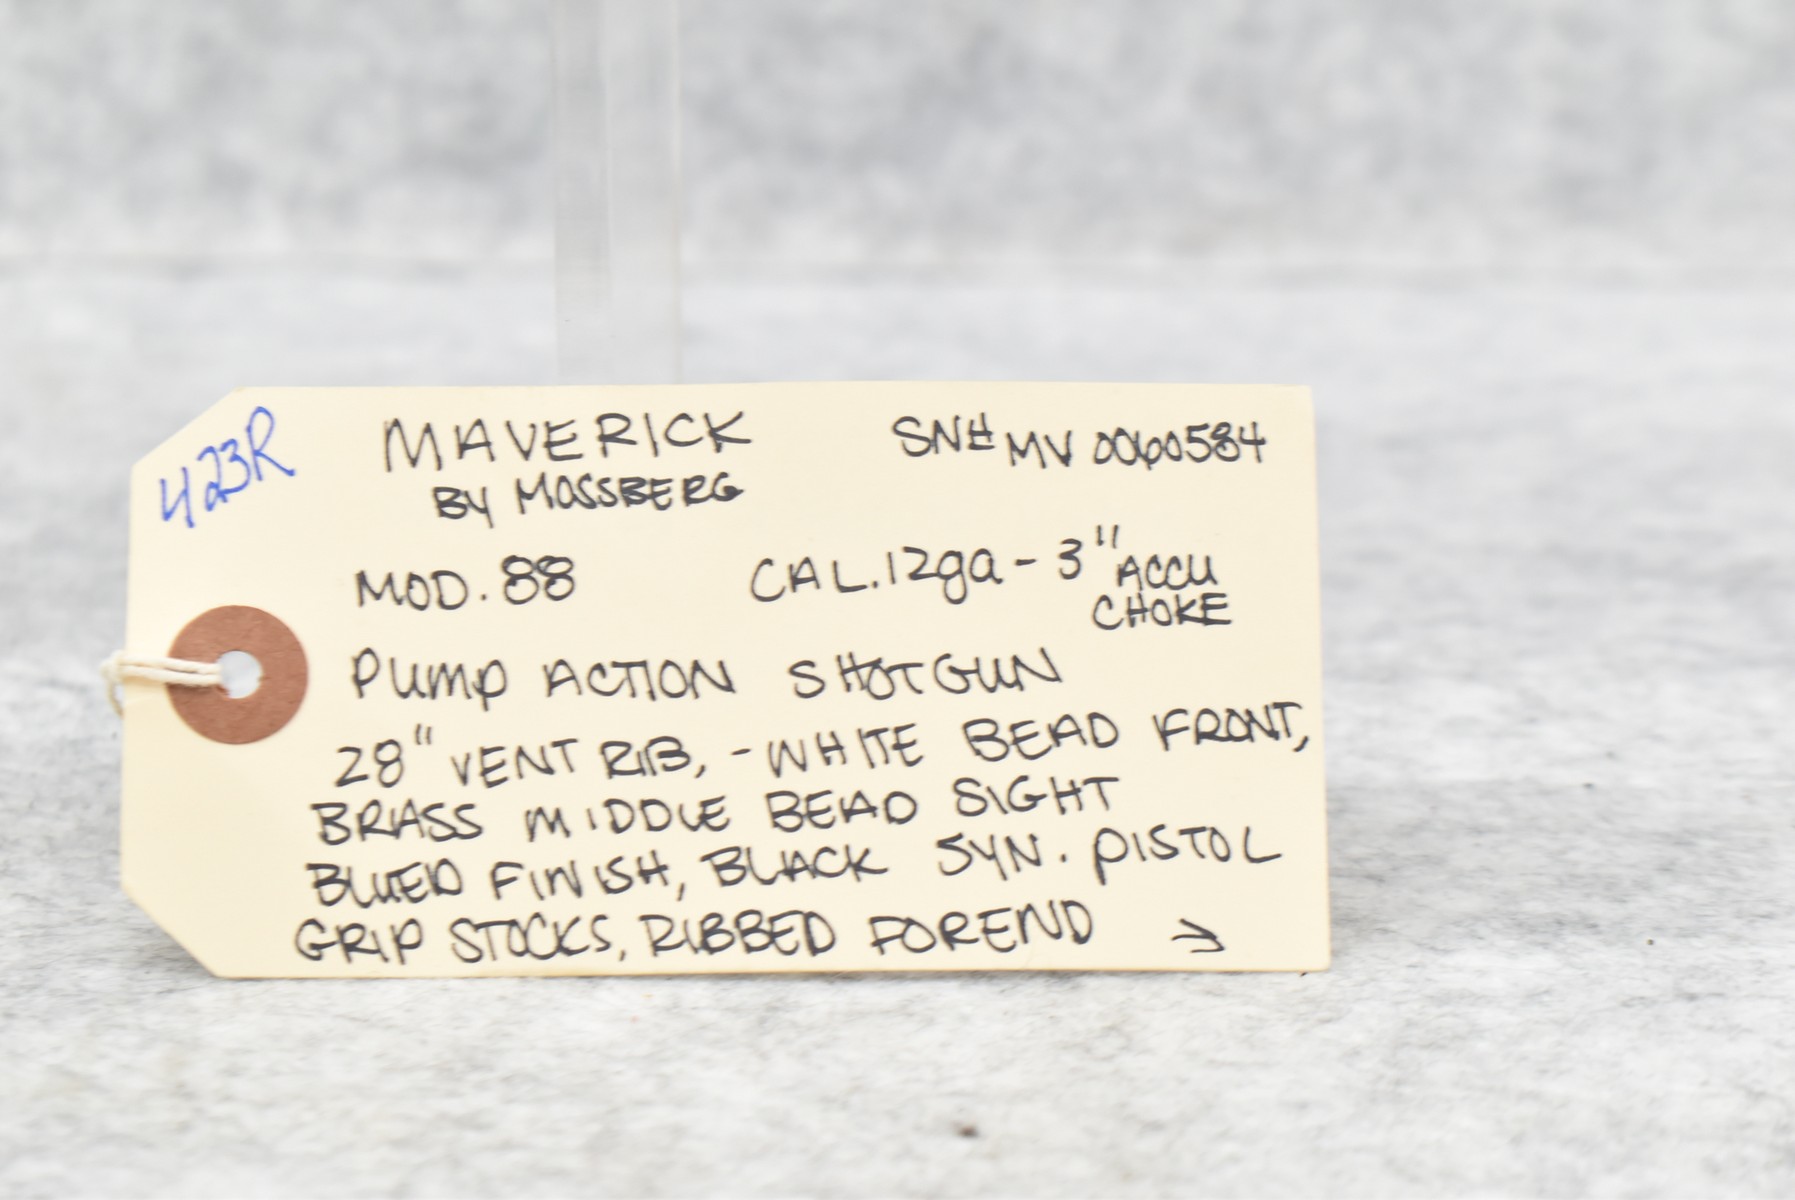 423R
MAVERICK SN# MV 0060584
BY MOSSBERG
MOD. 88 CAL. 12ga - 3" ACCU
CHOKE
PUMP ACTION SHOTGUN
28" VENT RIB, - WHITE BEAD FRONT,
BRASS MIDDLE BEAD SIGHT
BLUED FINISH, BLACK SYN. PISTOL
GRIP STOCKS, RIBBED FOREND →